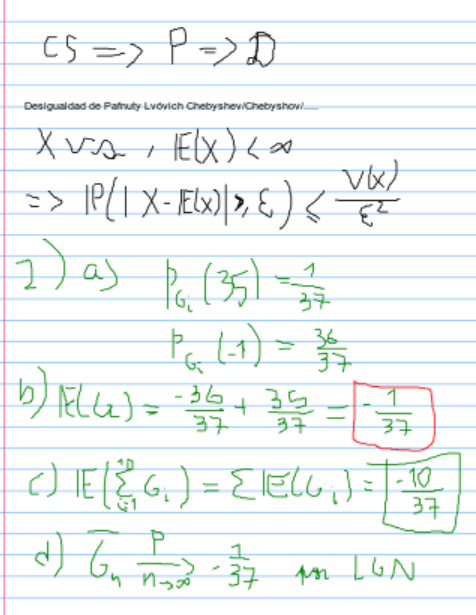 CS => P => D
Desigualdad de Pafnuty Lvóvich Chebyshev/Chebyshov/.....
X va , E(X) < ∞
=> P(| X - E(x)| ≥ ε) ≤ V(x)/ε²
2) a) p_{G_i}(35) = 1/37
p_{G_i}(-1) = 36/37
b) E(G_i) = -36/37 + 35/37 = -1/37
c) E(∑_{i=1}^{10} G_i) = ∑ E(G_i) = -10/37
d) \overline{G}_n P/n→∞ → -1/37 por LGN